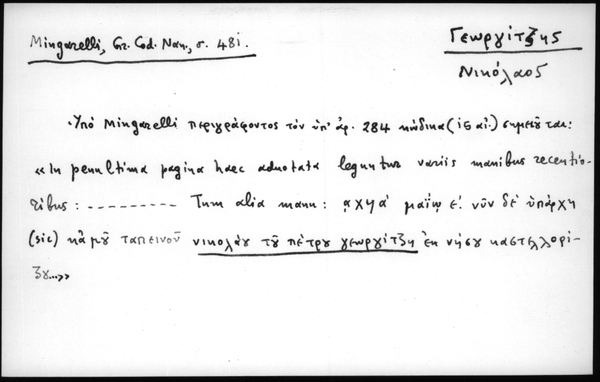 Mingarelli, Gr. Cod. Nan., σ. 481.
Γεωργίτζης
Νικόλαος
Ὑπό Mingarelli περιγράφοντος τόν ὑπ' ἀρ. 284 κώδικα (ις αἰ.) σημειοῦται:
«In penultima pagina haec adnotata leguntur variis manibus recentio-
ribus: --------- Tum alia manu: ͵αχϟα' μαΐῳ ε'. νῦν δέ ὑπάρχη
(sic) κἀμοῦ ταπεινοῦ νικολάου τοῦ πέτρου γεωργίτζη ἐκ νήσου καστελλορί-
ζου...»